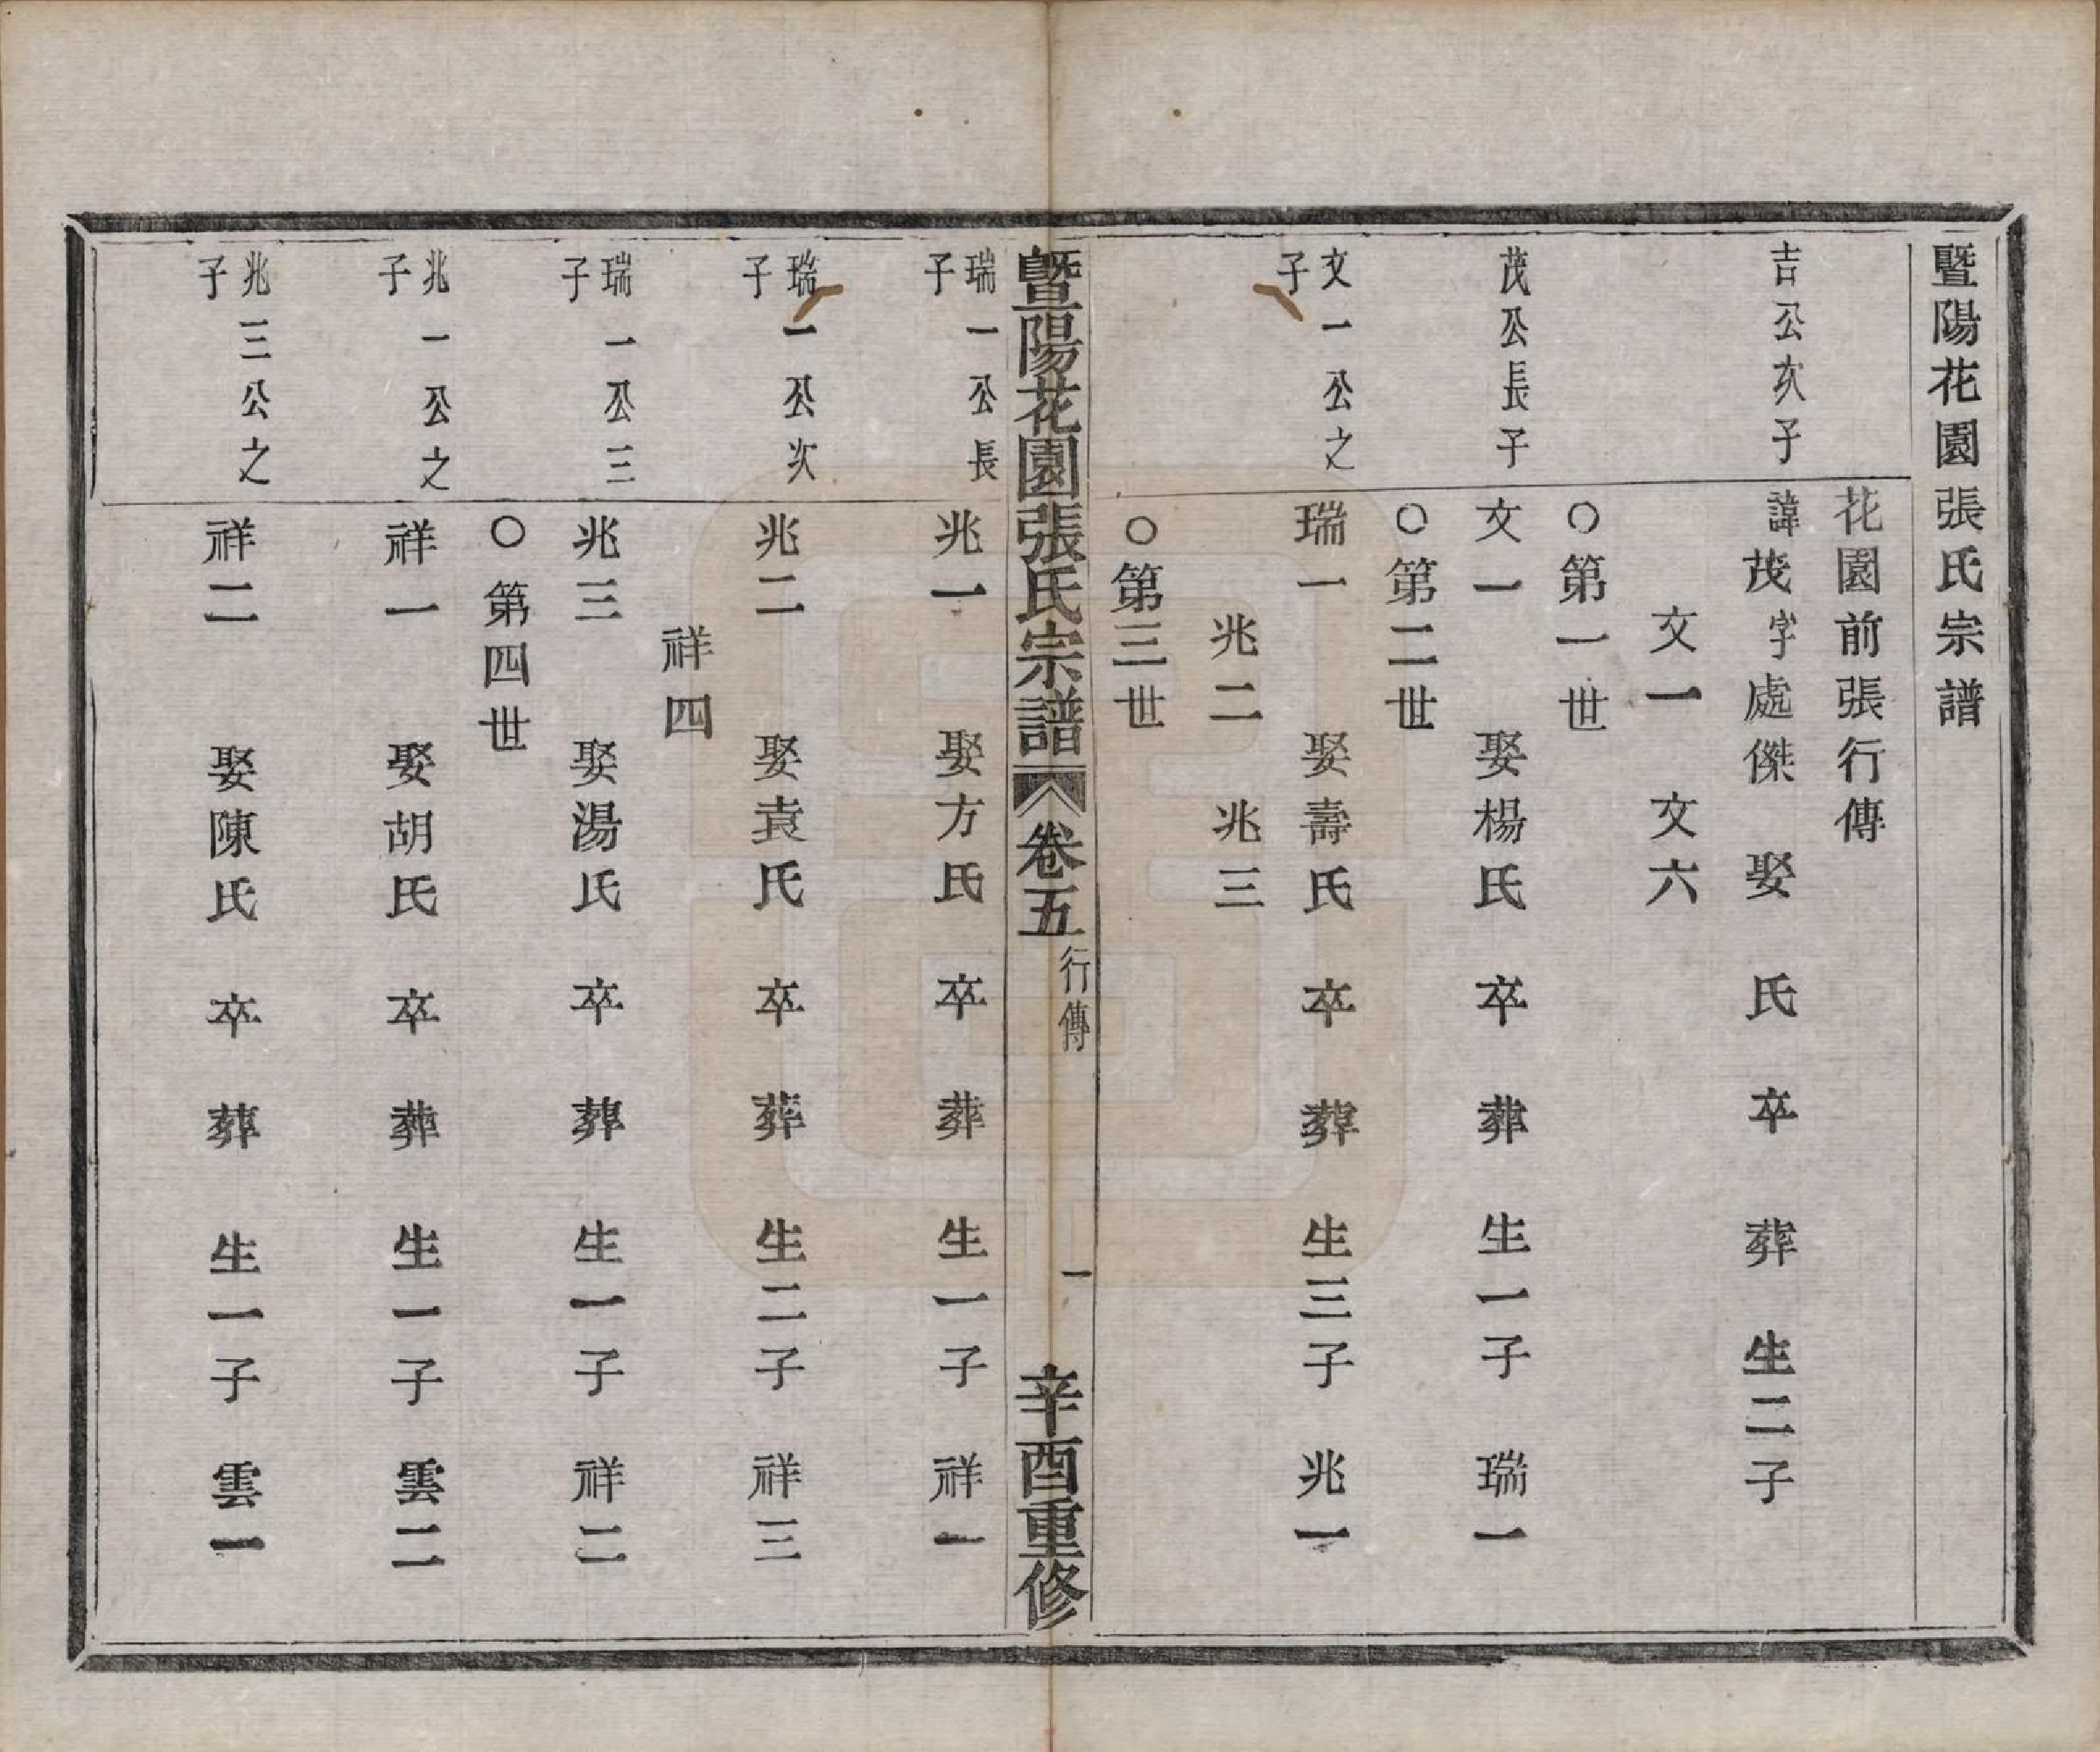 暨陽花園張氏宗譜
花園前張行傳
吉公次子
諱茂字處傑 娶 氏 卒 葬 生二子
文一 文六
○第一世
茂公長子
文一 娶楊氏 卒 葬 生一子 瑞一
○第二世
文一公之子
瑞一 娶壽氏 卒 葬 生三子 兆一
兆二 兆三
○第三世
暨陽花園張氏宗譜 卷五 行傳 一 辛酉重修
瑞一公長子
兆一 娶方氏 卒 葬 生一子 祥一
瑞一公次子
兆二 娶袁氏 卒 葬 生二子 祥三
祥四
瑞一公三子
兆三 娶湯氏 卒 葬 生一子 祥二
○第四世
兆一公之子
祥一 娶胡氏 卒 葬 生一子 雲二
兆三公之子
祥二 娶陳氏 卒 葬 生一子 雲一